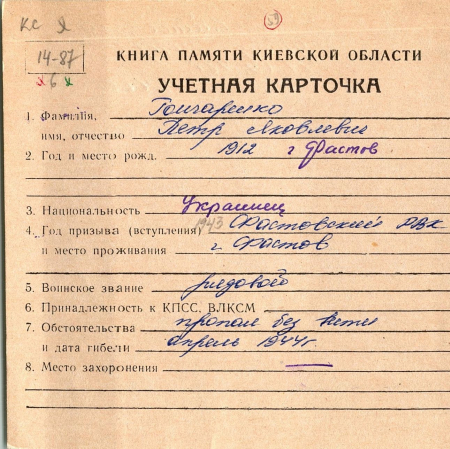 КС Я
59
14-87
х 6 х
КНИГА ПАМЯТИ КИЕВСКОЙ ОБЛАСТИ
УЧЕТНАЯ КАРТОЧКА
1. Фамилия, Гончаренко
имя, отчество Петр Яковлевич
2. Год и место рожд. 1912 г Фастов
3. Национальность Украинец
4. Год призыва (вступления) 1943 Фастовский РВК
и место проживания г Фастов
5. Воинское звание рядовой
6. Принадлежность к КПСС, ВЛКСМ
7. Обстоятельства пропал без вести
и дата гибели апрель 1944г
8. Место захоронения —